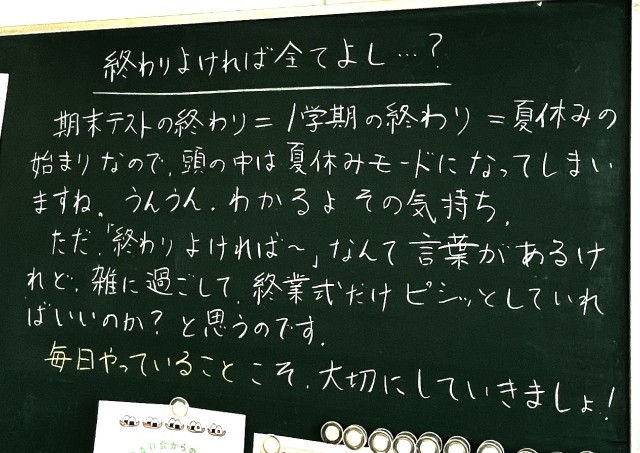 終わりよければ全てよし…？
期末テストの終わり＝1学期の終わり＝夏休みの
始まりなので、頭の中は夏休みモードになってしまい
ますね。うんうん、わかるよその気持ち。
ただ、「終わりよければ～」なんて言葉があるけ
れど、雑に過ごして、終業式だけピシッとしていれ
ばいいのか？と思うのです。
毎日やっていることこそ、大切にしていきましょ！